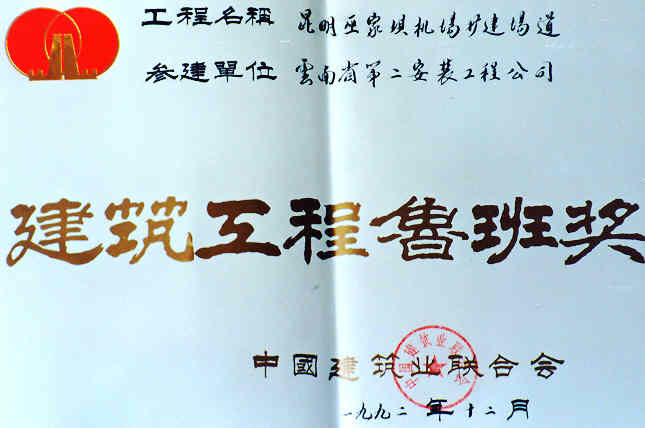 工程名稱 昆明巫家坝机場扩建場道
参建單位 雲南省第二安装工程公司
建筑工程魯班奖
中國建筑业联合会
中國建筑业联合会
一九九二年十二月